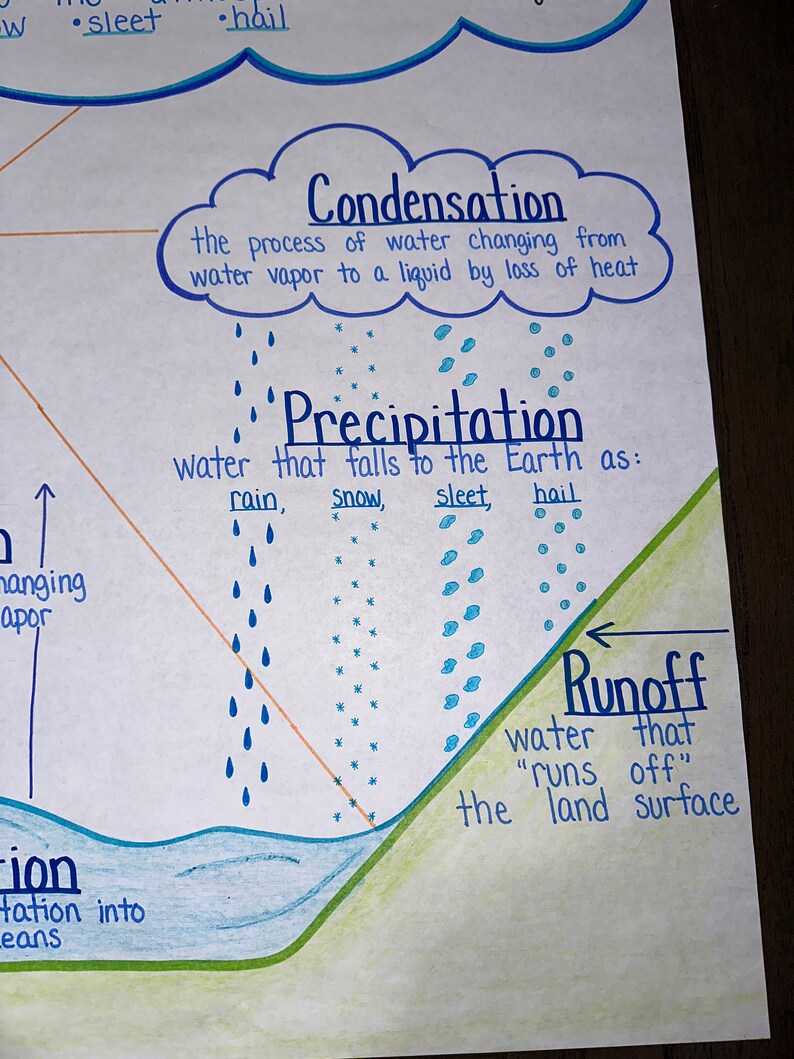 • sleet • hail
Condensation
the process of water changing from
water vapor to a liquid by loss of heat
Precipitation
water that falls to the Earth as:
rain, snow, sleet, hail
Runoff
water that
"runs off"
the land surface
into